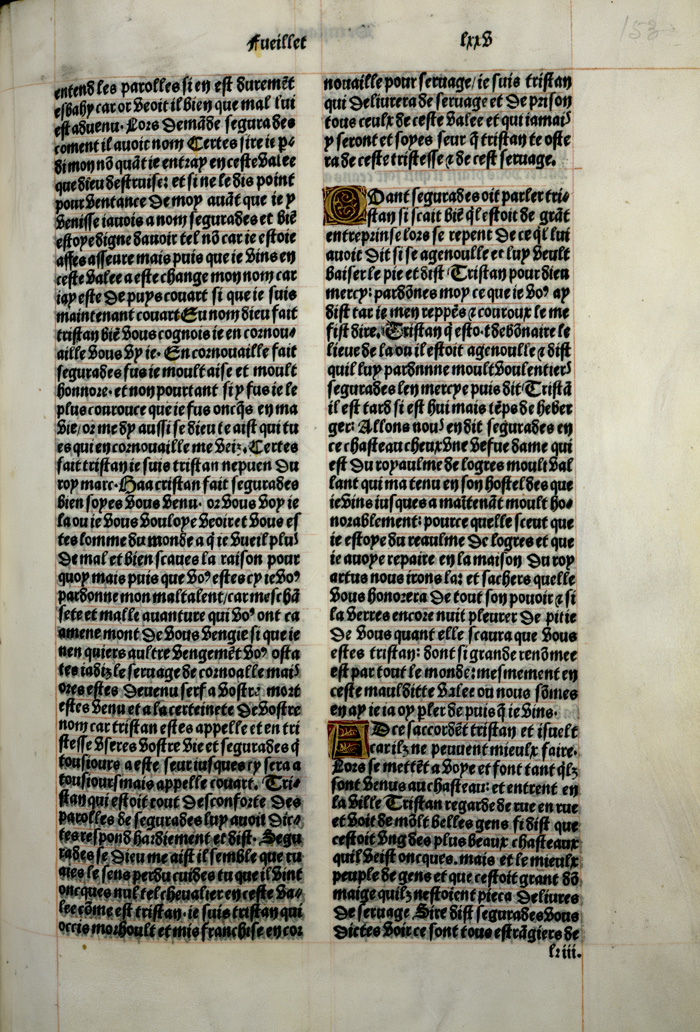 Fueillet lxxv
entend les parolles si en est duremēt
esbahy car or veoit il bien que mal lui
est aduenu. Lors demāde segurades
coment il auoit nom Certes sire ie p̄-
di mon nō quāt ie entray en ceste valee
que dieu destruise: et si ne le dis point
pour ventance de moy auāt que ie y
venisse iauois a nom segurades et biē
estoye digne dauoir tel nō car ie estoie
asses asseure mais puis que ie vins en
ceste valee a este change mon nom car
iay este de puys couart si que ie suis
maintenant couart En nom dieu fait
tristan biē vous cognois ie en cornou-
aille vous vy ie. En cornouaille fait
segurades fus ie moult aise et moult
honnore. et non pourtant si y fus ie le
plus courouce que ie fus oncq̄s en ma
vie/or me dy aussi se dieu te aist qui tu
es qui en cornouaille me veiz. Certes
fait tristan ie suis tristan nepueu du
roy marc. Haa tristan fait segurades
bien soyes vous venu. or vous voy ie
la ou ie vous vouloye veoir et vous es
tes lomme du monde a q̄ ie vueil plus
de mal et bien scaues la raison pour
quoy mais puis que voꝰ estes cy ie voꝰ
pardonne mon maltalent/car meschā
sete et malle auanture qui voꝰ ont ca
amene mont de vous vengie si que ie
nen quiers aultre vengemēt voꝰ osta
tes iadiz le seruage de cornoalle mais
ores estes deuenu serf a vostre mort
estes venu et a la certeinete de vostre
nom car tristan estes appelle et en tri
stesse vseres vostre vie et segurades q̄
tousiours a este seur iusques cy sera a
tousiours mais appelle couart. Tri-
stan qui estoit tout desconforte des
parolles de segurades luy auoit dic-
tes respond hardiement et dist. Segu
rades se dieu me aist il semble que tu
aies le sens perdu cuides tu que il vint
oncques nul tel cheualier en ceste va-
lee cōme est tristan. ie suis tristan qui
occis morhoult et mis franchise en cor
nouaille pour seruage/ie suis tristan
qui deliurera de seruage et de prison
tous ceulx de ceste valee et qui iamais
y seront et soyes seur q̄ tristan te oste
ra de ceste tristesse ⁊ de cest seruage.
Quant segurades oit parler tri-
stan si scait biē q̄l estoit de grāt
entreprinse lors se repent de ce q̄l lui
auoit dit si se agenoulle et luy veult
baiser le pie et dist Tristan pour dieu
mercy: pardōnes moy ce que ie voꝰ ay
dist car ie men reppēs ⁊ couroux le me
fist dire. Tristan q̄ esto.t debōnaire le
lieue de la ou il estoit agenoulle ⁊ dist
quil luy pardnnne moult voulentiers
segurades len mercye puis dit Tristā
il est tard si est hui mais tēps de heber
ger: Allons nous en dit segurades en
ce chasteau cheux vne vefue dame qui
est du royaulme de logres moult val
lant qui ma tenu en son hostel des que
ie vins iusques a maītenāt moult ho-
norablement: pource quelle sceut que
ie estoye du reaulme de logres et que
ie auoye repaire en la maison du roy
artus nous irons la: et sachers quelle
vous honorera de tout son pouoir ⁊ si
la verres encore nuit pleurer de pitie
de vous quant elle scaura que vous
estes tristan: dont si grande renōmee
est par tout le monde: mesmement en
ceste maulditte valee ou nous sōmes
en ay ie ia oy pler de puis q̄ ie vins.
A Dce saccordēt tristan et iseult
car ilz ne peuuent mieulx faire.
Lors se mettēt a voye et font tant q̄lz
sont venus au chasteau: et entrent en
la ville Tristan regarde de rue en rue
et voit de mōlt belles gens si dist que
cestoit vng des plus beaux chasteaux
quil veist oncques. mais et le mieulx
peuple de gens et que cestoit grant dō
maige quilz nestoient pieca deliures
de seruage. Sire dist segurades vous
dictes voir ce sont tous estrāgiers de
l. iii.